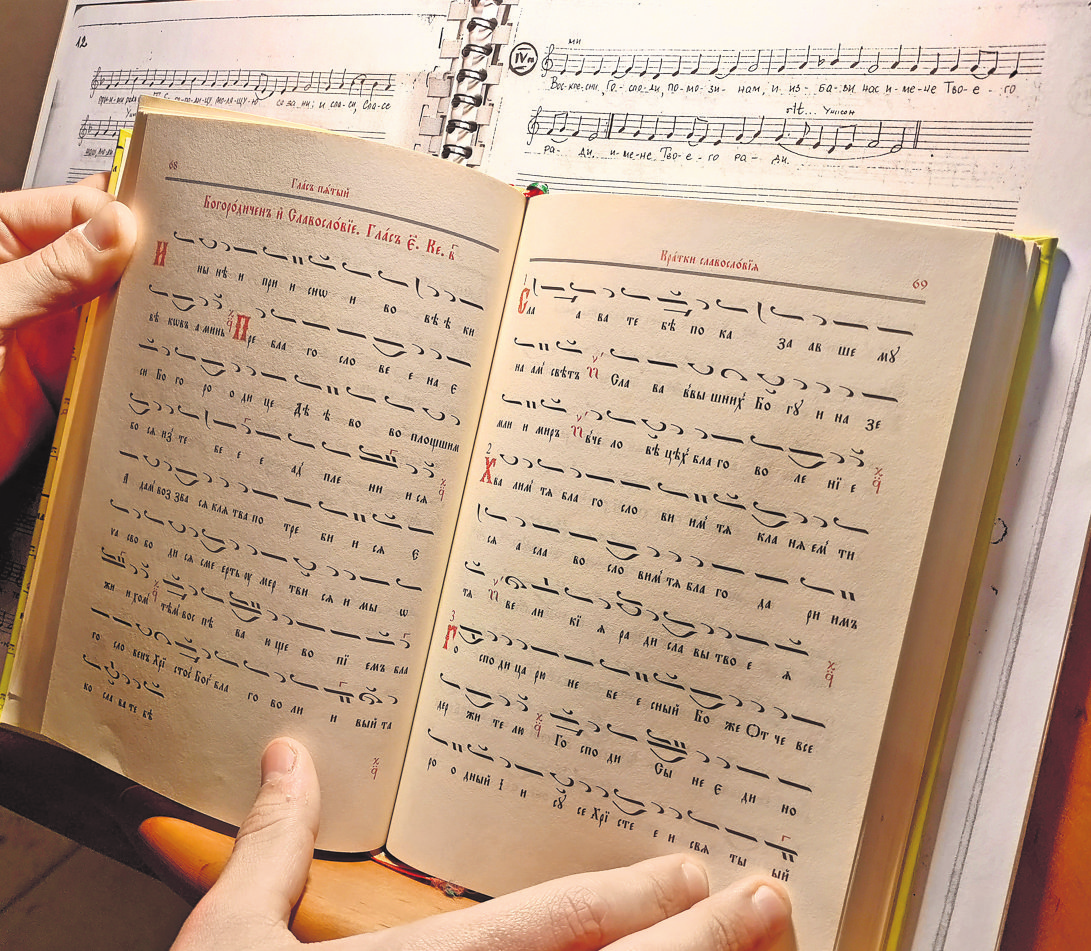 12
IVгл
ми
Вос-кре-сни, Го-спо-ди, по-мо-зи-нам, и из-ба-ви нас и-ме-не Тво-е-го
rit... Унисон
ра-ди и-ме-не Тво-е-го ра-ди.
со зда ни; и спа-си, Спа-се
68
Гла́съ пѧ́тый
Богоро́диченъ и҆ Славосло́вїе. Гла́съ є҃. Ке. в҃
И ны нѣ и при и снѡ и во вѣ ѣ ки
вѣ кѡвъ а минь Пре бла го сло ве е на Є
си Бо го ро о ди це Дѣ ѣ во во площшим
бо сѧ из̾ те бе е е ад̾ пле ни и сѧ
А дам̾ воз зва сѧ клѧ тва по тре би и сѧ Є
va сво бо ди сѧ сме ерть ѹ мер тви сѧ и мы ѡ
жи и хом̾ тѣм̾ вос пѣ ва и ще во пї емъ бла
го сло венъ Хрї стос̾ Бог̾ бла го во ли и вый та
ко сла ва те бѣ
Кра̑тки славосло́вїѧ
69
1
Сла а ва те бѣ по ка за ав ше мꙋ
на ам̾ свѣтъ Сла ва в̾вы шних̾ Бо гꙋ и на зе
мли и миръ в̾че ло вѣ ѣцѣх̾ бла го во ле нї е
2
Хва лим̾ тѧ бла го сло ви им̾ тѧ кла нѧ ем̾ ти
сѧ а сла во сло вим̾ тѧ бла го да ри имъ
тѧ ве ли кї ѧ ра ди сла вы тво е ѧ
3
Го спо ди ца рю не бе е сный Бо же От че все
дер жи те лю Го спо ди Сы не Є ди но
ро о дный І и сꙋ се Хрї сте е и свѧ ты ый